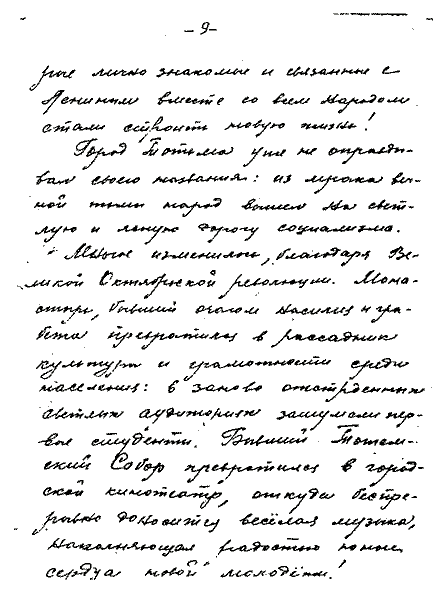 -9-
рые лично знакомые и связанные с
Лениным вместе со всем народом
стали строить новую жизнь!
Город Тотьма уже не оправды-
вал своего названия: из мрака веч-
ной тьмы народ вышел на свет-
лую и ясную дорогу социализма.
Многое изменилось, благодаря Ве-
ликой Октябрьской революции. Мона-
стырь, бывший очагом насилия и гра-
бежа превратился в рассадник
культуры и грамотности среди
населения: в заново отстроенных
светлых аудиториях зашумели пер-
вые студенты. Бывший Тотем-
ский Собор превратился в город-
ской кинотеатр, откуда беспре-
рывно доносится весёлая музыка,
наполняющая радостью юные
сердца новой молодёжи!